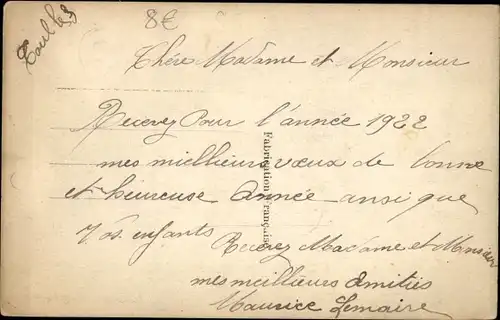 8€
Chére Madame et Monsieur
Recevez Pour l'année 1922
mes miellieurs vœux de bonne
et heureuse Année ansi que
Vos enfants
Recevez Madame et Monsieur
mes meilleurs Amitiés
Maurice Lemaire
Fabrication Française